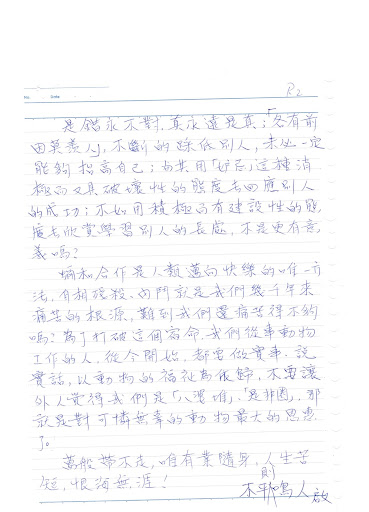 P2
是錯永不對,真永遠是真;「各有前
因莫羨人」,不斷的踩低別人,未必一定
能夠抬高自己;與其用「妒忌」這種消
極而又具破壞性的態度去回應別人
的成功;不如用積極而有建設性的態
度去欣賞學習別人的長處,不是更有意
義嗎?
和合作是人類邁向快樂的唯一方
法,自相殘殺、內鬥就是我們幾千年來
痛苦的根源,難到我們還痛苦得不夠
嗎?為了打破這個宿命,我們從事動物
工作的人,從今開始,都要做實事、說
實話,以動物的福祉為依歸,不要讓
外人覺得我們是「八婆堆」、「是非圈」,那
就是對可憐無辜的動物最大的恩惠
了。
萬般帶不走,唯有業隨身,人生苦
短,恨海無涯!
不平則鳴人 啟